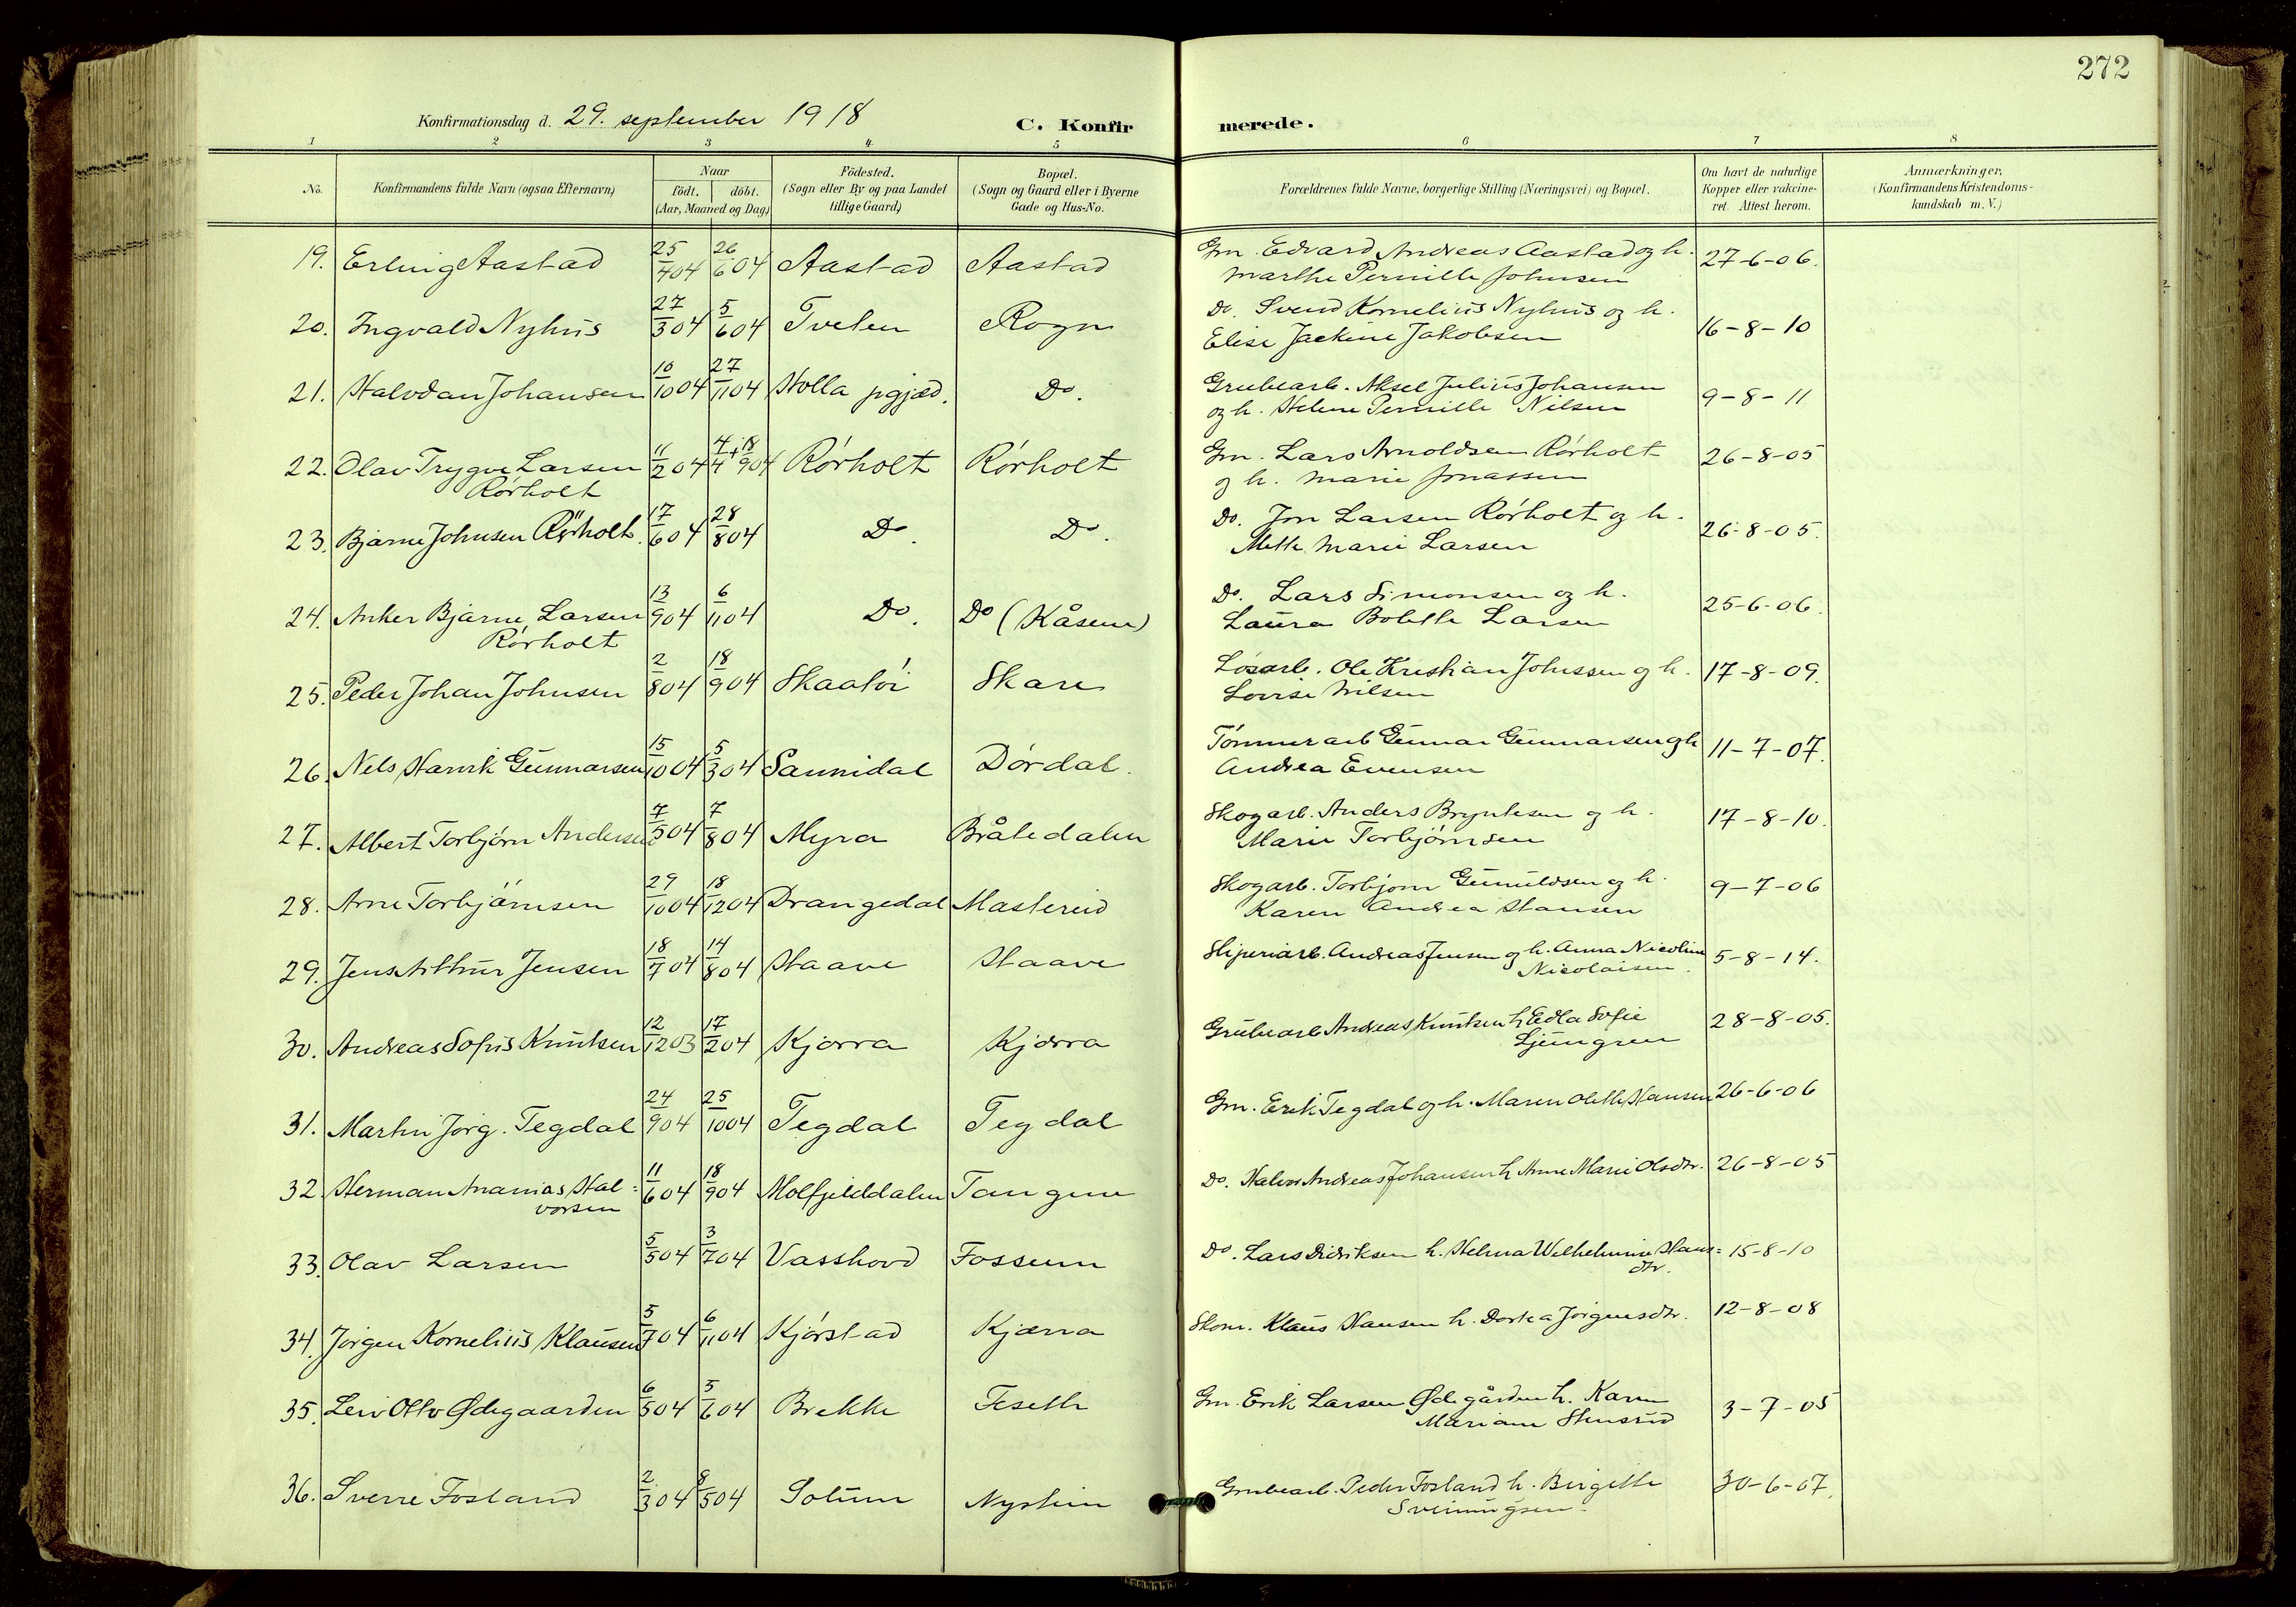 272
Konfirmationsdag d. 29. september 1918
C. Konfirmerede.
1 2 3 4 5 6 7 8
No.
Konfirmandens fulde Navn (ogsaa Efternavn)
Naar
födt. döbt.
(Aar, Maaned og Dag)
Födested.
(Sogn eller By og paa Landet
tillige Gaard)
Bopæl.
(Sogn og Gaard eller i Byerne
Gade og Hus-No.
Forældrenes fulde Navne, borgerlige Stilling (Næringsvei) og Bopæl.
Om havt de naturlige
Kopper eller vakcine-
ret. Attest herom.
Anmærkninger,
(Konfirmandens Kristendoms-
kundskab m. V.)
19. Erling Aastad 25/4 04 26/6 04 Aastad Aastad Gm. Edvard Andreas Aastad og h. 27-6-06.
Marthe Pernille Johnsen
20. Ingvald Nyhus 27/3 04 5/6 04 Tveten Rogn Do. Svend Kornelius Nyhus og h. 16-8-10
Elise Jackine Jakobsen
21. Halvdan Johansen 10/10 04 27/11 04 Holla prgjæld. Do. Grubearb. Aksel Julius Johansen 9-8-11
og h. Helene Pernille Nilsen
22. Olav Trygve Larsen 11/2 04 4/4 + 18/9 04 Rórholt Rórholt Gm. Lars Arnoldsen Rórholt 26-8-05
Rórholt og h. Marie Jonassen
23. Bjarne Johnsen Rörholt. 17/6 04 28/8 04 Do. Do. Do. Jon Larsen Rórholt og h. 26-8-05.
Mette Marie Larsen
24. Anker Bjarne Larsen 13/9 04 6/11 04 Do. Do (Kåsene) Do. Lars Simonsen og h. 25-6-06.
Rórholt Laura Bolette Larsen
25. Peder Johan Johnsen 2/8 04 18/9 04 Skaatói Skare Lósarb. Ole Kristian Johnssen og h. 17-8-09.
Lovise Nilsen
26. Nels Henrik Gunnarsen 15/10 04 5/3 04 Sannidal Dórdal. Tómmerarb Gunnar Gunnarsen og h 11-7-07.
Andrea Evensen
27. Albert Torbjórn Andersen 7/5 04 7/8 04 Myra Bråtedalen Skogarb. Anders Bryntesen og h. 17-8-10.
Marie Torbjórnsen
28. Arne Torbjórnsen 29/10 04 18/12 04 Drangedal Mastereid Skogarb. Torbjorn Gunuldsen og h. 9-7-06
Karen Andrea Hansen
29. Jens Arthur Jensen 18/7 04 14/8 04 Haave Haave Sliperiarb. Andreas Jensen og h. Anna Nicoline 5-8-14.
Nicolaisen.
30. Andreas Sofus Knutsen 12/12 03 17/2 04 Kjærra Kjærra Grubearb Andreas Knutsen h Edla Sofie 28-8-05.
Ljungren
31. Martin Jórg. Tegdal 24/9 04 25/10 04 Tegdal Tegdal Gm. Erik Tegdal og h. Maren Olette Hansen 26-6-06
32. Herman Ananias Hal- 11/6 04 18/9 04 Molfjelddalen Tangene Do. Halvor Andreas Johansen h Anne Marie Olsdtr. 26-8-05
vorsen
33. Olav Larsen 5/5 04 3/7 04 Vasshovd Fossum Do. Lars Didriksen h. Helena Wilhelmine Hans= 15-8-10
dtr.
34. Jórgen Kornelius Klausen 5/7 04 6/11 04 Kjórstad Kjærra Skom. Klaus Hansen h. Dortea Jórgensdtr. 12-8-08
35. Leiv Otto Ødegaarden 6/5 04 5/6 04 Brekke Feseth Gm. Erik Larsen Ødegården h. Karen 3-7-05
Mariane Stensrud
36. Sverre Fosland 2/3 04 8/5 04 Solum Nystein Grubearb. Peder Fosland h. Birgitte 30-6-07.
Sveinungsen